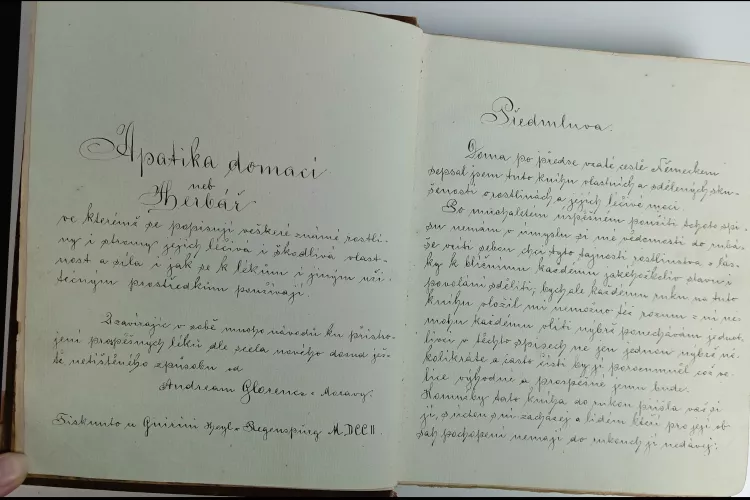 Apatika domaci
neb
Herbář
ve kterémž se popisují veškeré známé rostli-
ny i stromy jejich léčivá i škodlivá vlast-
nost a síla i jak se k lékům i jiným uži-
tečným prostředkům používají.
Dzavírajíc v sobě mnoho návodů ku přistro-
jení prospěšných léků dle scela nového doma ješ-
tě netištěného způsobu od
Andream Glorenc z Moravy.
Tisknuto u Quirini Heyl v Regenspurg MDCCII
Předmluva.
Doma po předse vzaté cestě Německem
sepsal jsem tuto knihu vlastních a sdělených sku-
šeností o rostlinách a jejich léčivé moci.
Po mnohaletém úspěšném použití těchto spi-
su nemám v úmyslu si mé vědomosti do hrobu
se vzíti sebou chci tyto tajnosti rostlinstva z lás-
ky k bližnímu každému jakéhožkoliv stavu i
povolání sděliti, bych ale každému ruku na tuto
knihu vložil mi nemožno též rozum z ní ne-
mohu každému vlíti nybrž ponechávám jednot-
livci v těchto spisech ne jen jednou nybrž ně-
kolikráte a často čísti by ji porozumněl což ve-
lice výhodné a prospěšné jemu bude.
Komužky tato kniha do rukou přišla važ si
jí, s úctou s ní zacházej a lidem kteří pro její ob-
sah pochopení nemají do rukouch ji nedávej.